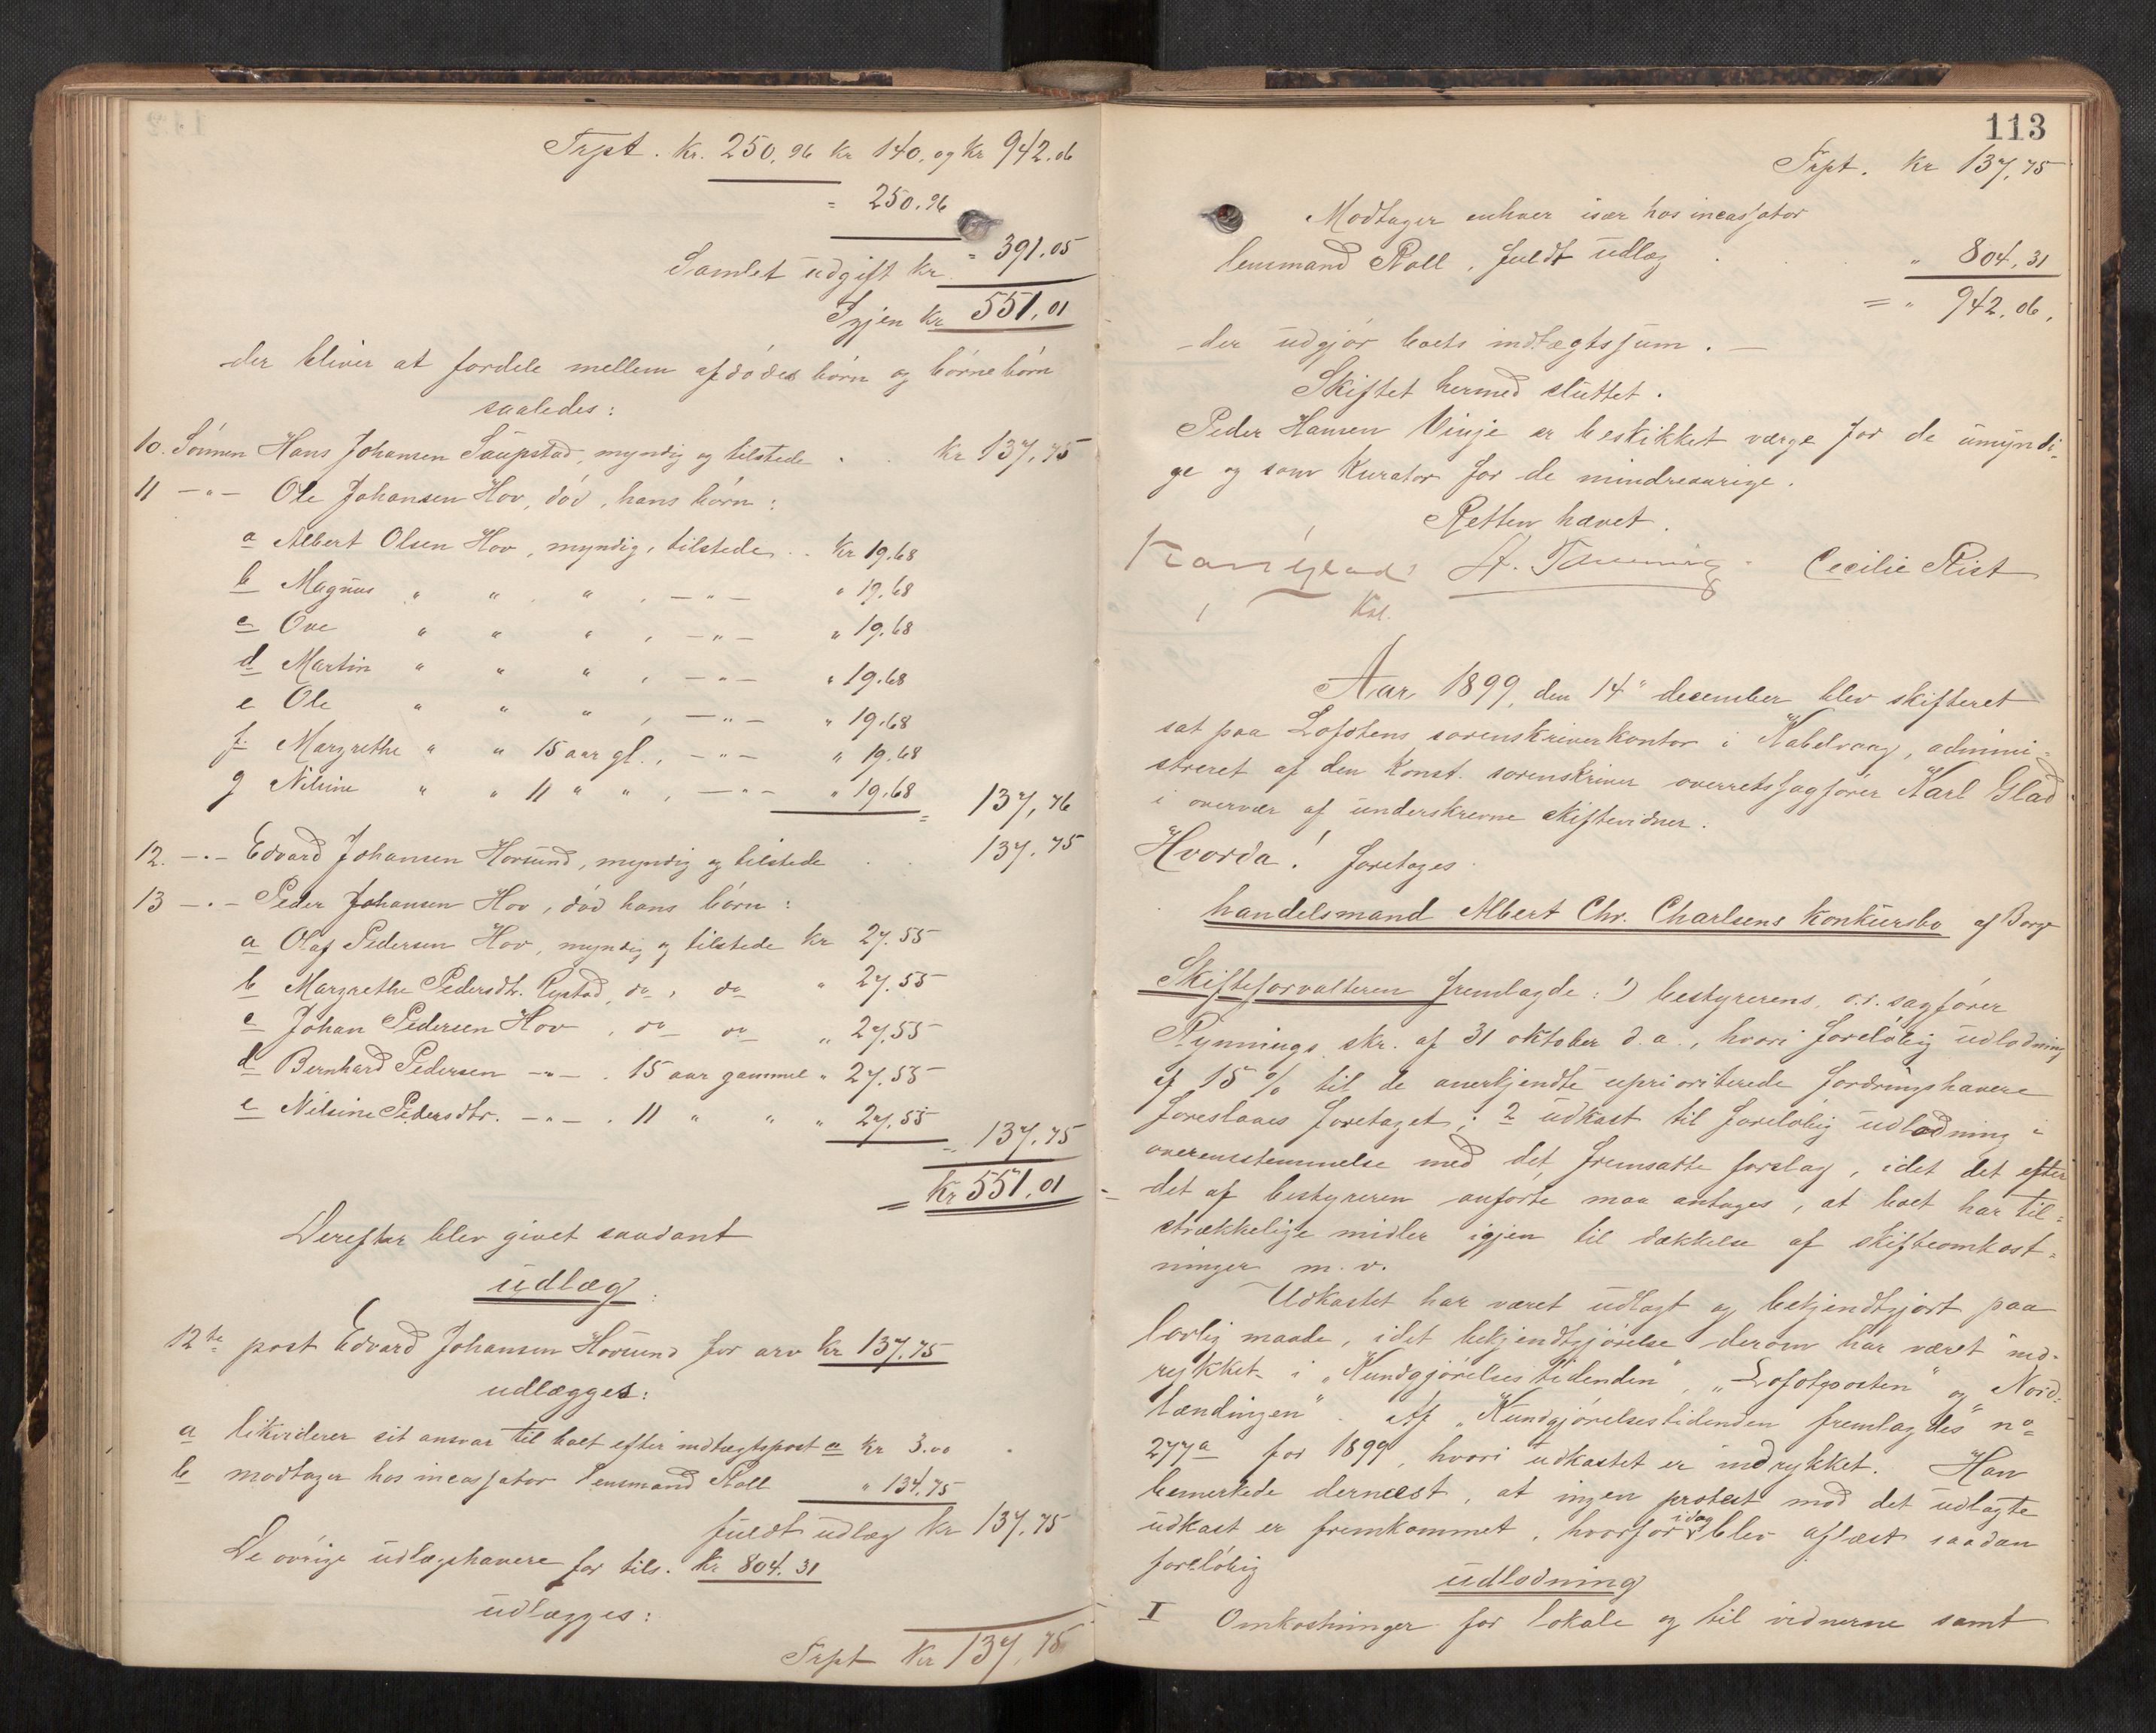 Trpt. Kr. 250,96 Kr 140, og Kr 942.06
= 250.96
= 391.05
Samlet udgift Kr.
Igjen Kr 551,01
der bliver at fordele mellem afdødes børn og børnebørn
saaledes:
10. Sønnen Hans Johansen Saupstad, myndig og tilstede . . Kr 137,75
11 -"- Ole Johansen Hov, død, hans børn:
a Albert Olsen Hov, myndig, tilstede . . Kr 19.68
b Magnus " " , " , -"- " 19.68
c Ove " " " , -"- " 19.68
d Martin " " " , -"- " 19.68
e Ole " " " , -"- " 19.68
f. Margrethe " " 15 aar gl., -"- " 19.68
g Nilsine " " 11 " " , -"- " 19.68
= 137,76
12. -"- Edvard Johansen Hovsund, myndig og tilstede . . 137.75
13 -"- Peder Johansen Hov, død hans børn:
a Olaf Pedersen Hov, myndig og tilstede Kr 27.55
b Margrethe Pedersdtr. Rystad, do, do " 27.55
c Johan Pedersen Hov, do do " 27,55
d Bernhard Pedersen -"- . 15 aar gammel " 27.55
e Nilsine Pedersdtr. -"- . 11 " " " 27,55
" 137.75
= Kr 551,01
Derefter blev givet saadant
udlæg:
12te post Edvard Johansen Hovsund for arv Kr 137.75
udlægges:
a likviderer sit ansvar til boet efter indtægtspost a Kr 3.00
b modtager hos incassator lensmand Roll " 134.75
fuldt udlæg Kr 137.75
De øvrige udlægshavere for tils. Kr 804.31
udlægges:
Trpt Kr 137,75
113
Trpt. Kr 137,75
Modtager enhver især hos incassator
lensmand Roll, fuldt udlæg . . . " 804,31
= " 942,06,
der udgjør boets indtægtssum. —
Skiftet hermed sluttet.
Peder Hansen Vinje er beskikket værge for de umyndi-
ge og som Kurator for de mindreaarige.
Retten hævet.
Karl Glad Cecilie Rist
Kst.
Aar 1899, den 14" december blev skifteret
sat paa Lofotens sorenskriverkontor i Kabelvaag, admini-
streret af den Konst. sorenskriver overretssagfører Karl Glad
i overvær af underskrevne skiftevidner.
Hvorda! foretoges
handelsmand Albert Chr. Charlsens Konkursbo af Borge
Skifteforvalteren fremlagde: 1) bestyrerens, o.r. sagfører
Rynnings skr. af 31 oktober d. a., hvori foreløbig udlodning
af 15 % til de anerkjendte uprioriterede fordringshavere
foreslaaes foretaget; 2 udkast til foreløbig udlodning i
overensstemmelse med det fremsatte forslag, idet det efter
det af bestyreren anførte maa antages, at boet har til-
strækkelige midler igjen til dækkelse af skifteomkost-
ninger m. v.
Udkastet har været udlagt og bekjendtgjort paa
lovlig maade, idet bekjendtgjørelse derom har været ind-
rykket i "Kundgjørelsestidenden", "Lofotposten" og "Nord-
lændingen". Af "Kundgjørelsestidenden fremlagdes no
277a for 1899, hvori udkastet er indrykket. Han
bemerkede dernæst, at ingen protest mod det udlagte
udkast er fremkommet, hvorfor idag blev aflæst saadan
foreløbig
udlodning
I Omkostninger for lokale og til vidnerne samt